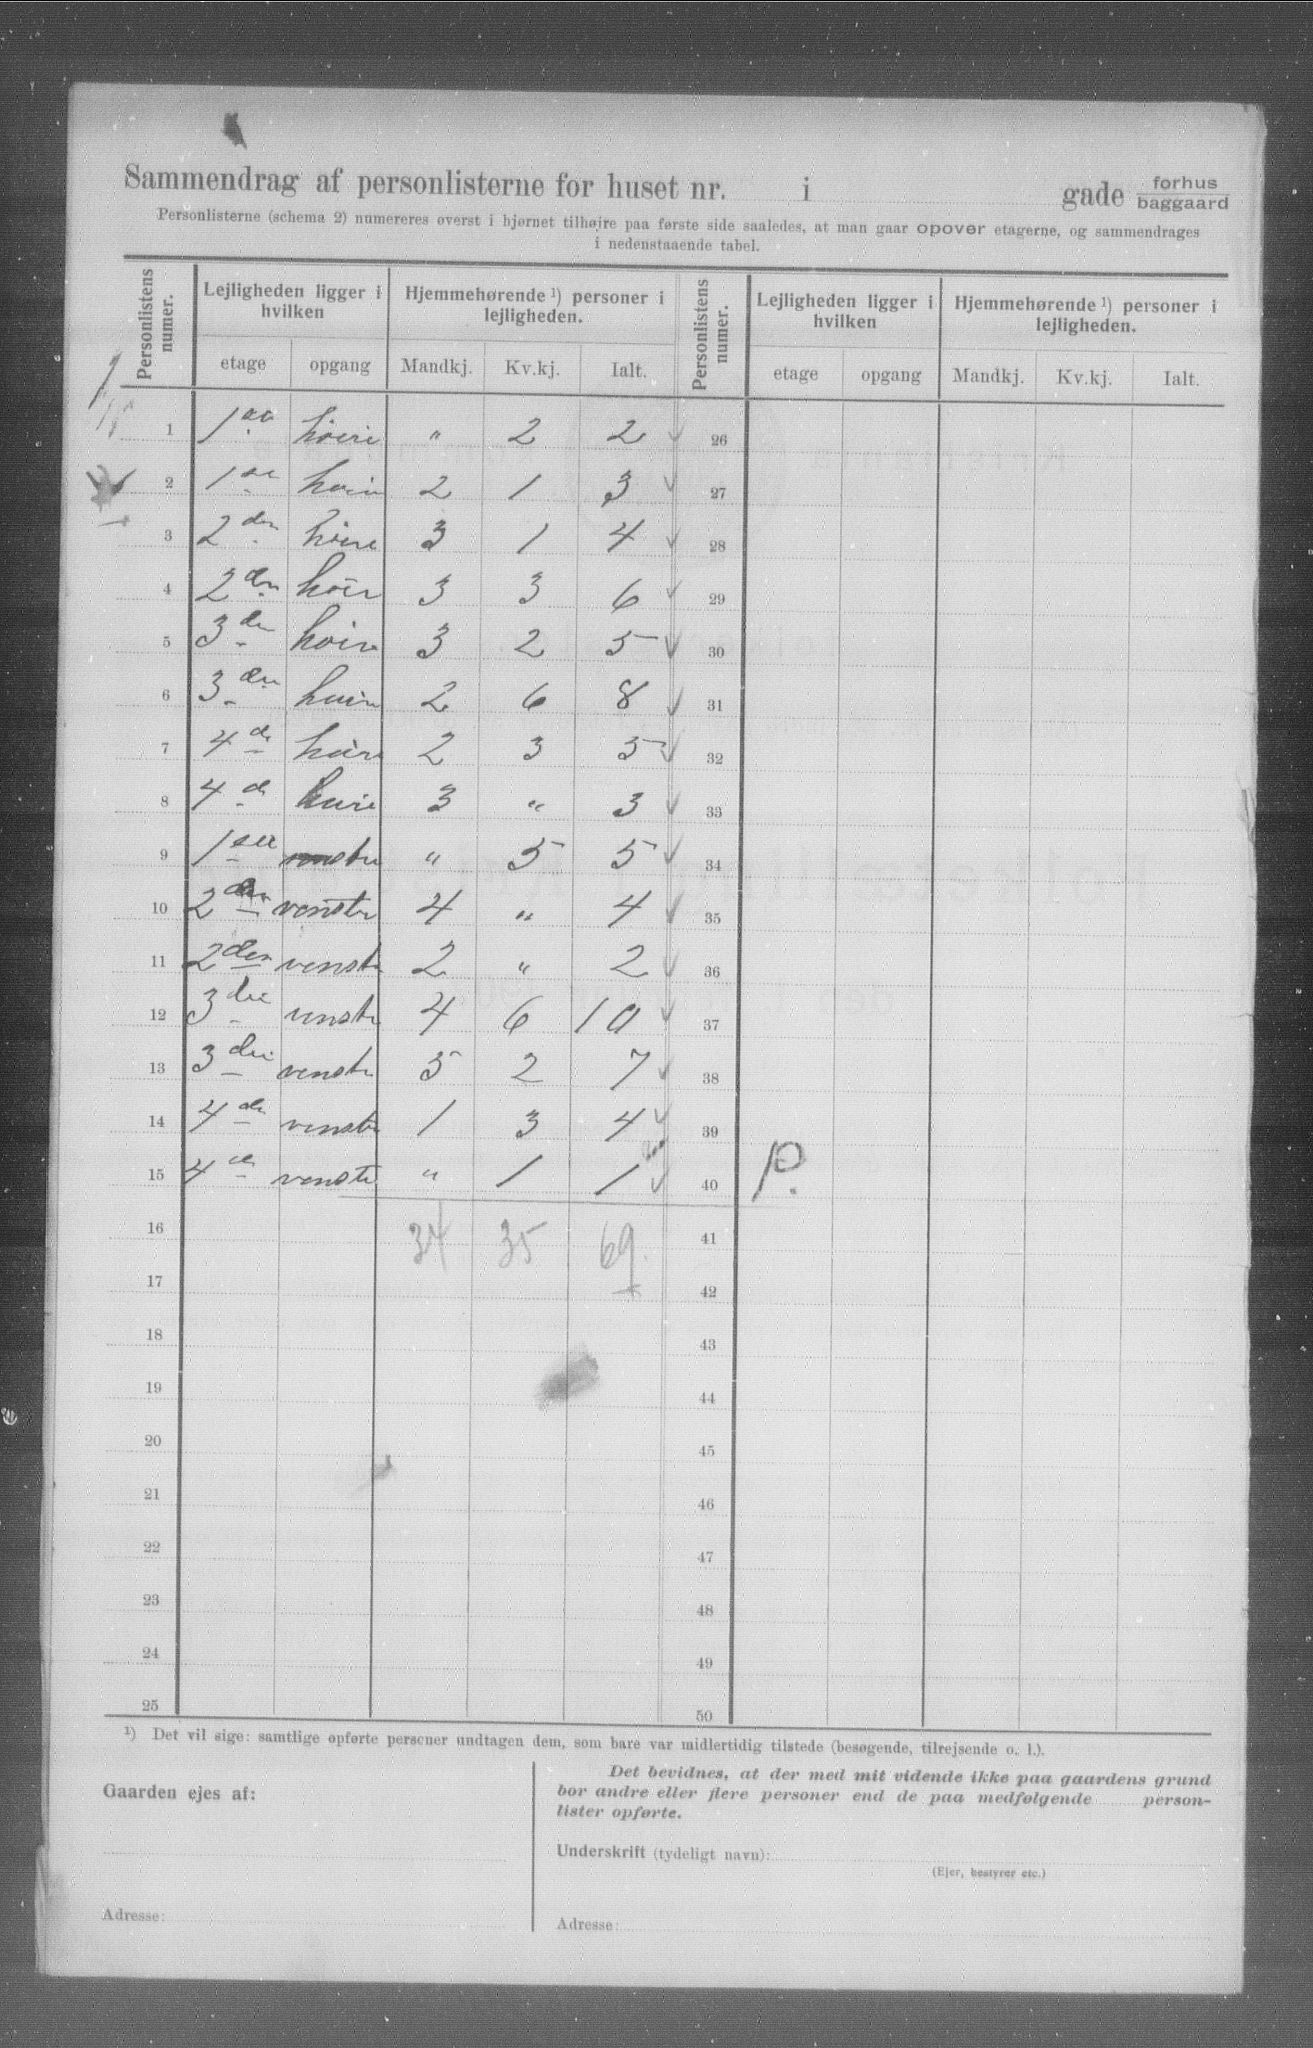 Sammendrag af personlisterne for huset nr. i gade forhus baggaard
Personlisterne (schema 2) numereres øverst i hjørnet tilhøjre paa første side saaledes, at man gaar opover etagerne, og sammendrages
i nedenstaaende tabel.
Personlistens numer. Lejligheden ligger i hvilken Hjemmehørende ¹) personer i lejligheden. Personlistens numer. Lejligheden ligger i hvilken Hjemmehørende ¹) personer i lejligheden.
etage opgang Mandkj. Kv.kj. Ialt. etage opgang Mandkj. Kv.kj. Ialt.
1 1 høire " 2 2 26
2 1 høire 2 1 3 27
3 2den høire 3 1 4 28
4 2den høire 3 3 6 29
5 3die høire 3 2 5 30
6 3die høire 2 6 8 31
7 4de høire 2 3 5 32
8 4de høire 3 " 3 33
9 1ste venstre " 5 5 34
10 2den venstre 4 " 4 35
11 2den venstre 2 " 2 36
12 3die venstre 4 6 10 37
13 3die venstre 5 2 7 38
14 4de venstre 1 3 4 39
15 4de venstre " 1 1 40 P.
16 34 35 69 41
17 42
18 43
19 44
20 45
21 46
22 47
23 48
24 49
25 50
¹) Det vil sige: samtlige opførte personer undtagen dem, som bare var midlertidig tilstede (besøgende, tilrejsende o. l.).
Gaarden ejes af:
Adresse:
Det bevidnes, at der med mit vidende ikke paa gaardens grund
bor andre eller flere personer end de paa medfølgende person-
lister opførte.
Underskrift (tydeligt navn):
(Ejer, bestyrer etc.)
Adresse: